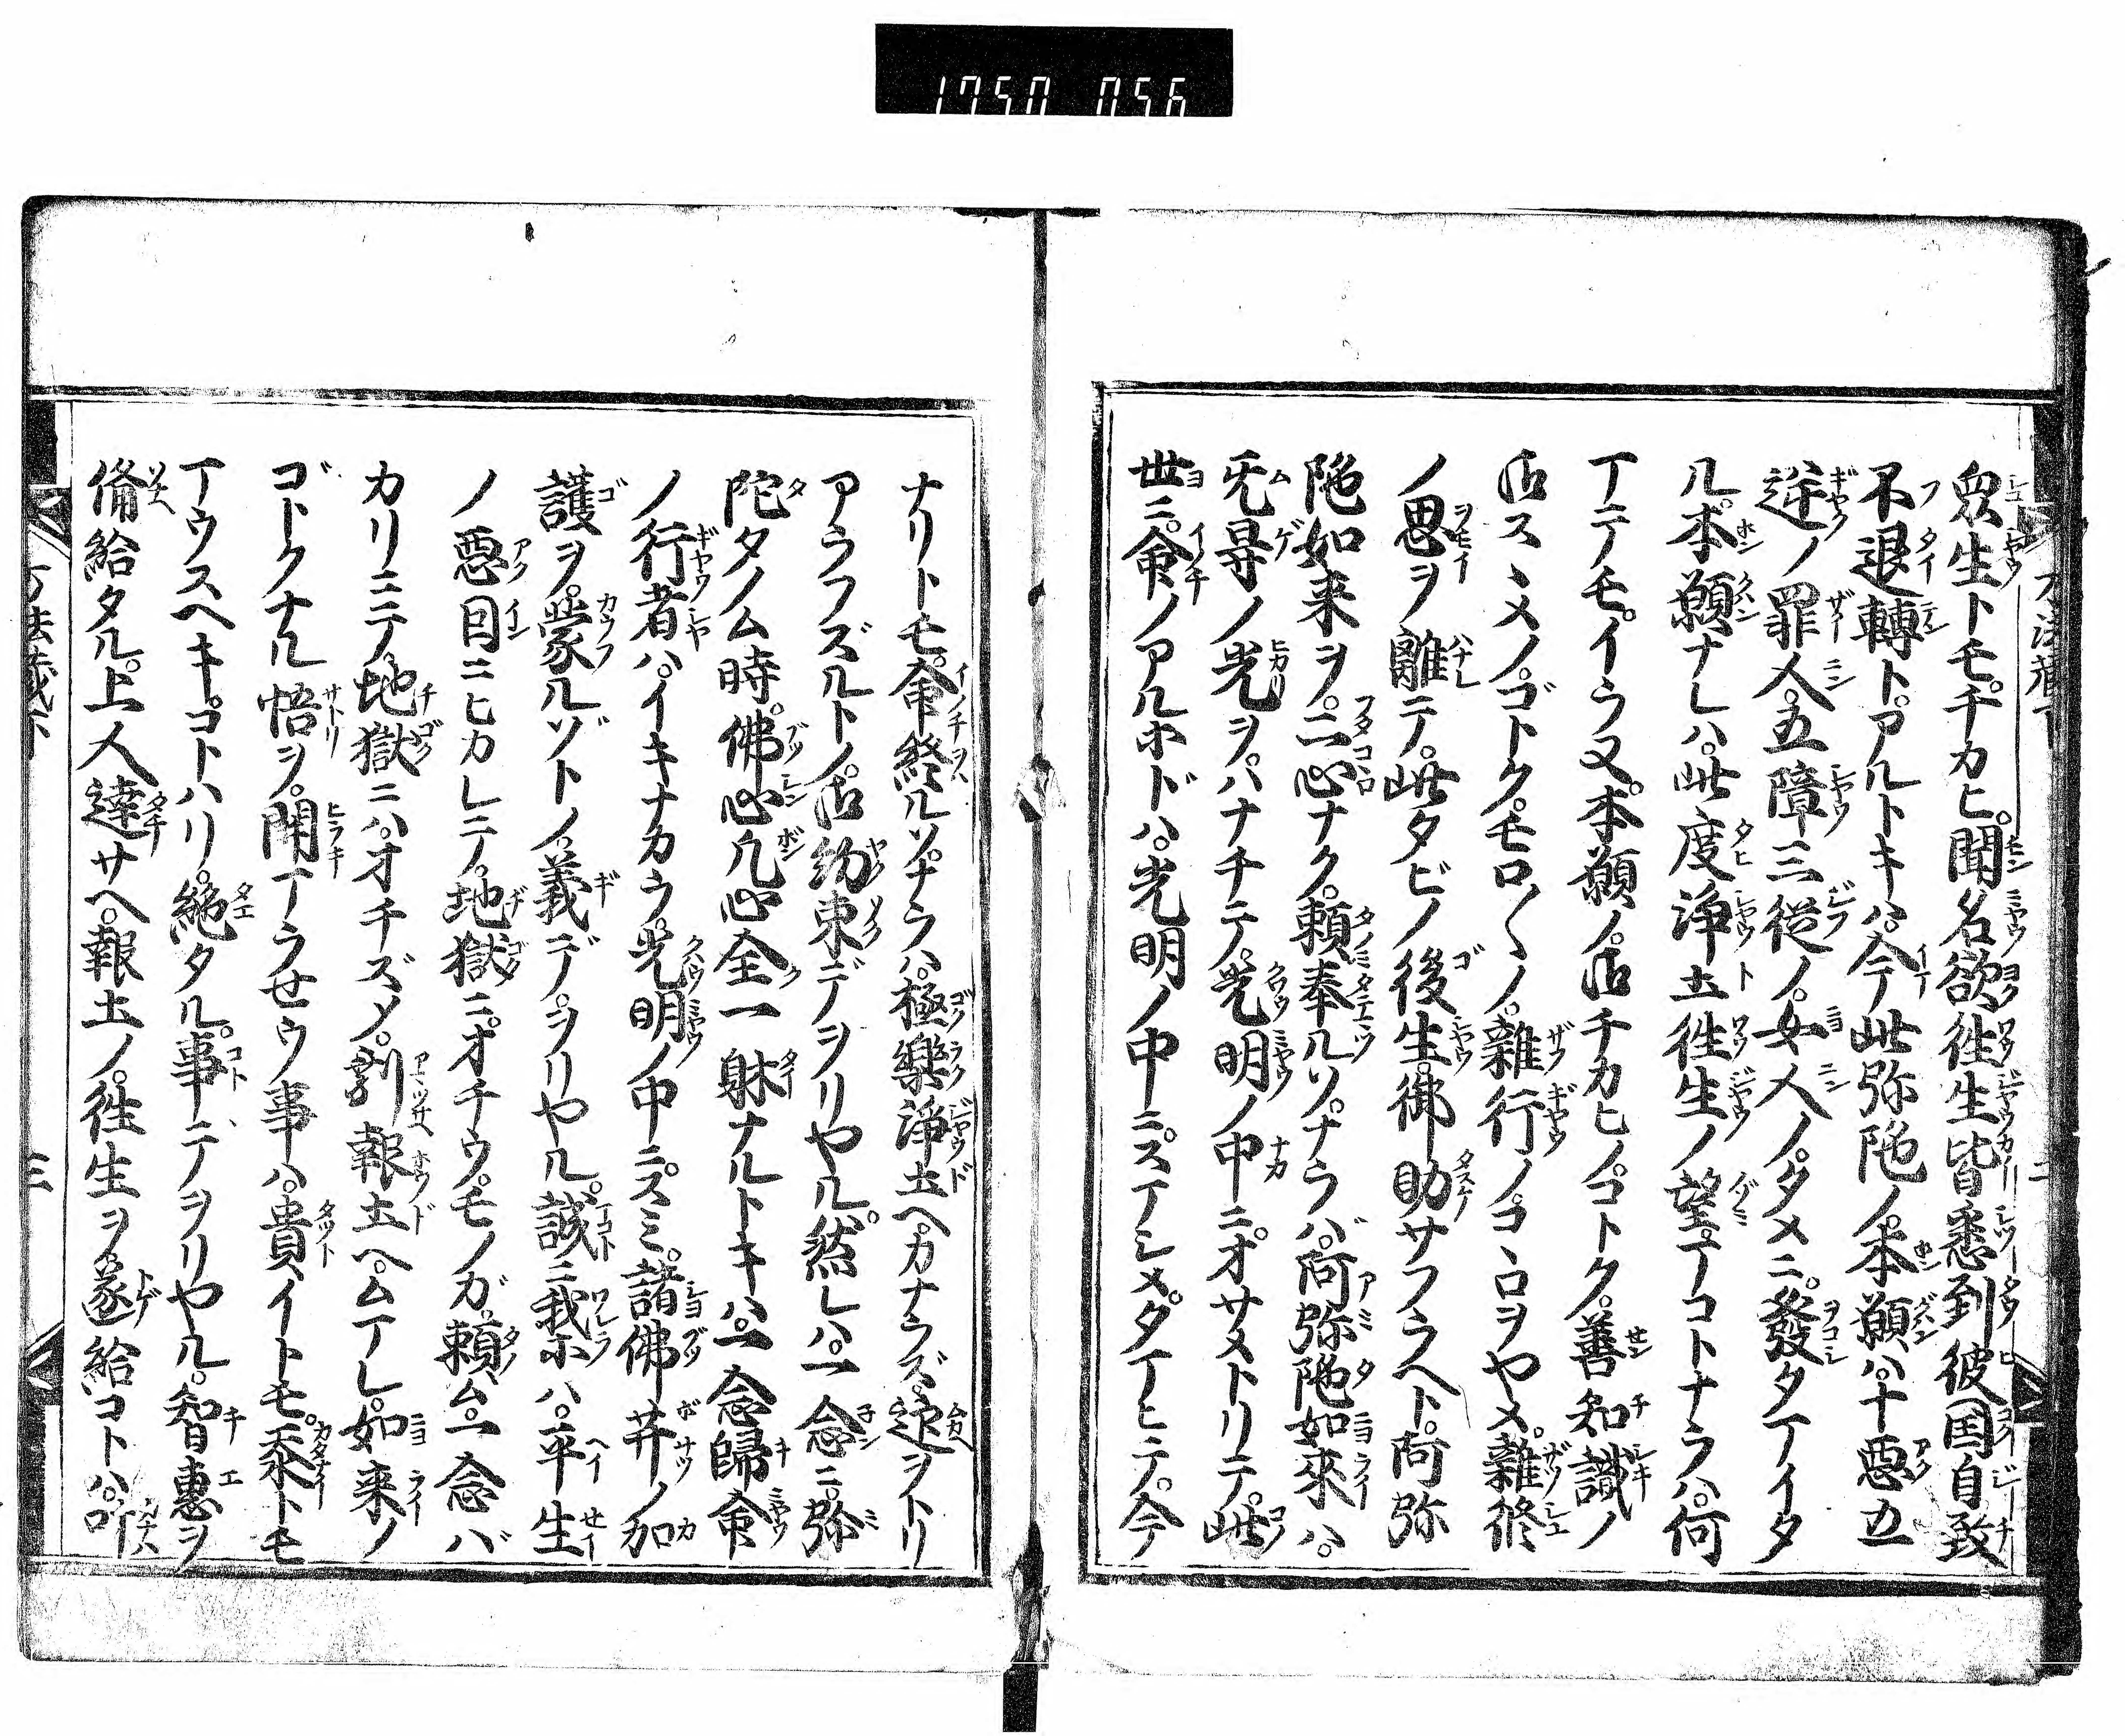 1750 056
衆生トモチカヒ。聞名欲徃生皆悉到彼国自致
不退轉ト。アルトキハ。今此弥陁ノ本願ハ。十悪五
逆ノ罪人。五障三従ノ。女人ノ。タメニ。發タマイタ
ル。本願ナレハ。此度淨土徃生ノ望マコトナラハ。何
マテノモ。イラヌ。本願ノ。御チカヒノコトク。善知識ノ
御スヽメノ。ゴトク。モロ〱ノ。雜行ノコヽロヲヤメ。雜修
ノ思ヲ離テ。此タビノ後生。御助サフラヘト。阿弥
陁如来ヲ。二心ナク。頼奉ルソ。ナラバ。阿弥陁如來ハ。
无㝵ノ光ヲ。ハナチテ。光明ノ中ニ。オサメトリテ。此
世ニ。命ノアルホドハ。光明ノ中ニ。スマシメ。タマヒテ。今
ナリトモ。命終ルソ。ナラハ。極樂淨土ヘ。カナラズ。迎ヲトリ
アラフズルトノ。御約束デヲリヤル。然レハ。一念ニ。弥
陀タノム時。佛心凡心全一躰ナルトキハ。一念歸命
ノ行者ハ。イキナカラ。光明ノ中ニ。スミ。諸佛菩薩ノ加
護ヲ。蒙ルゾトノ。義デ。ヲリヤル。誠ニ我等ハ。平生
ノ悪因ニヒカレテ。地獄ニ。オチウ。モノガ。頼ム。一念バ
カリニテ。地獄ニハ。オチズメ。割報土ヘ。ムマレ。如来ノ
ゴトクナル悟ヲ。開マラせウ事ハ。貴イトモ。忝トモ
マウスヘキ。コトハリ。絶タル。事デヲリヤル。智惠ヲ
備給タル。上人達サヘ。報土ノ。徃生ヲ遂給コトハ。叶
三